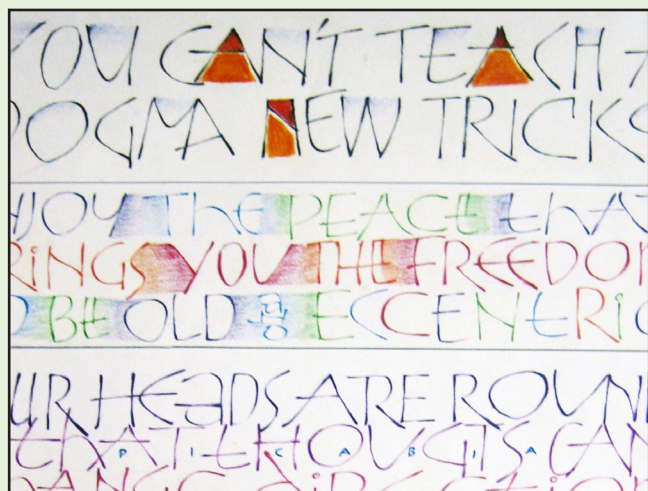 YOU CAN'T TEACH A
DOGMA NEW TRICKS
NJOY THE PEACE thAT
RiNGS YOU THE FREEDOM
O BE OLD and ECCENtRiC
UR HEADS ARE ROUND
thAT tHOUGTS CAN
PICABIA